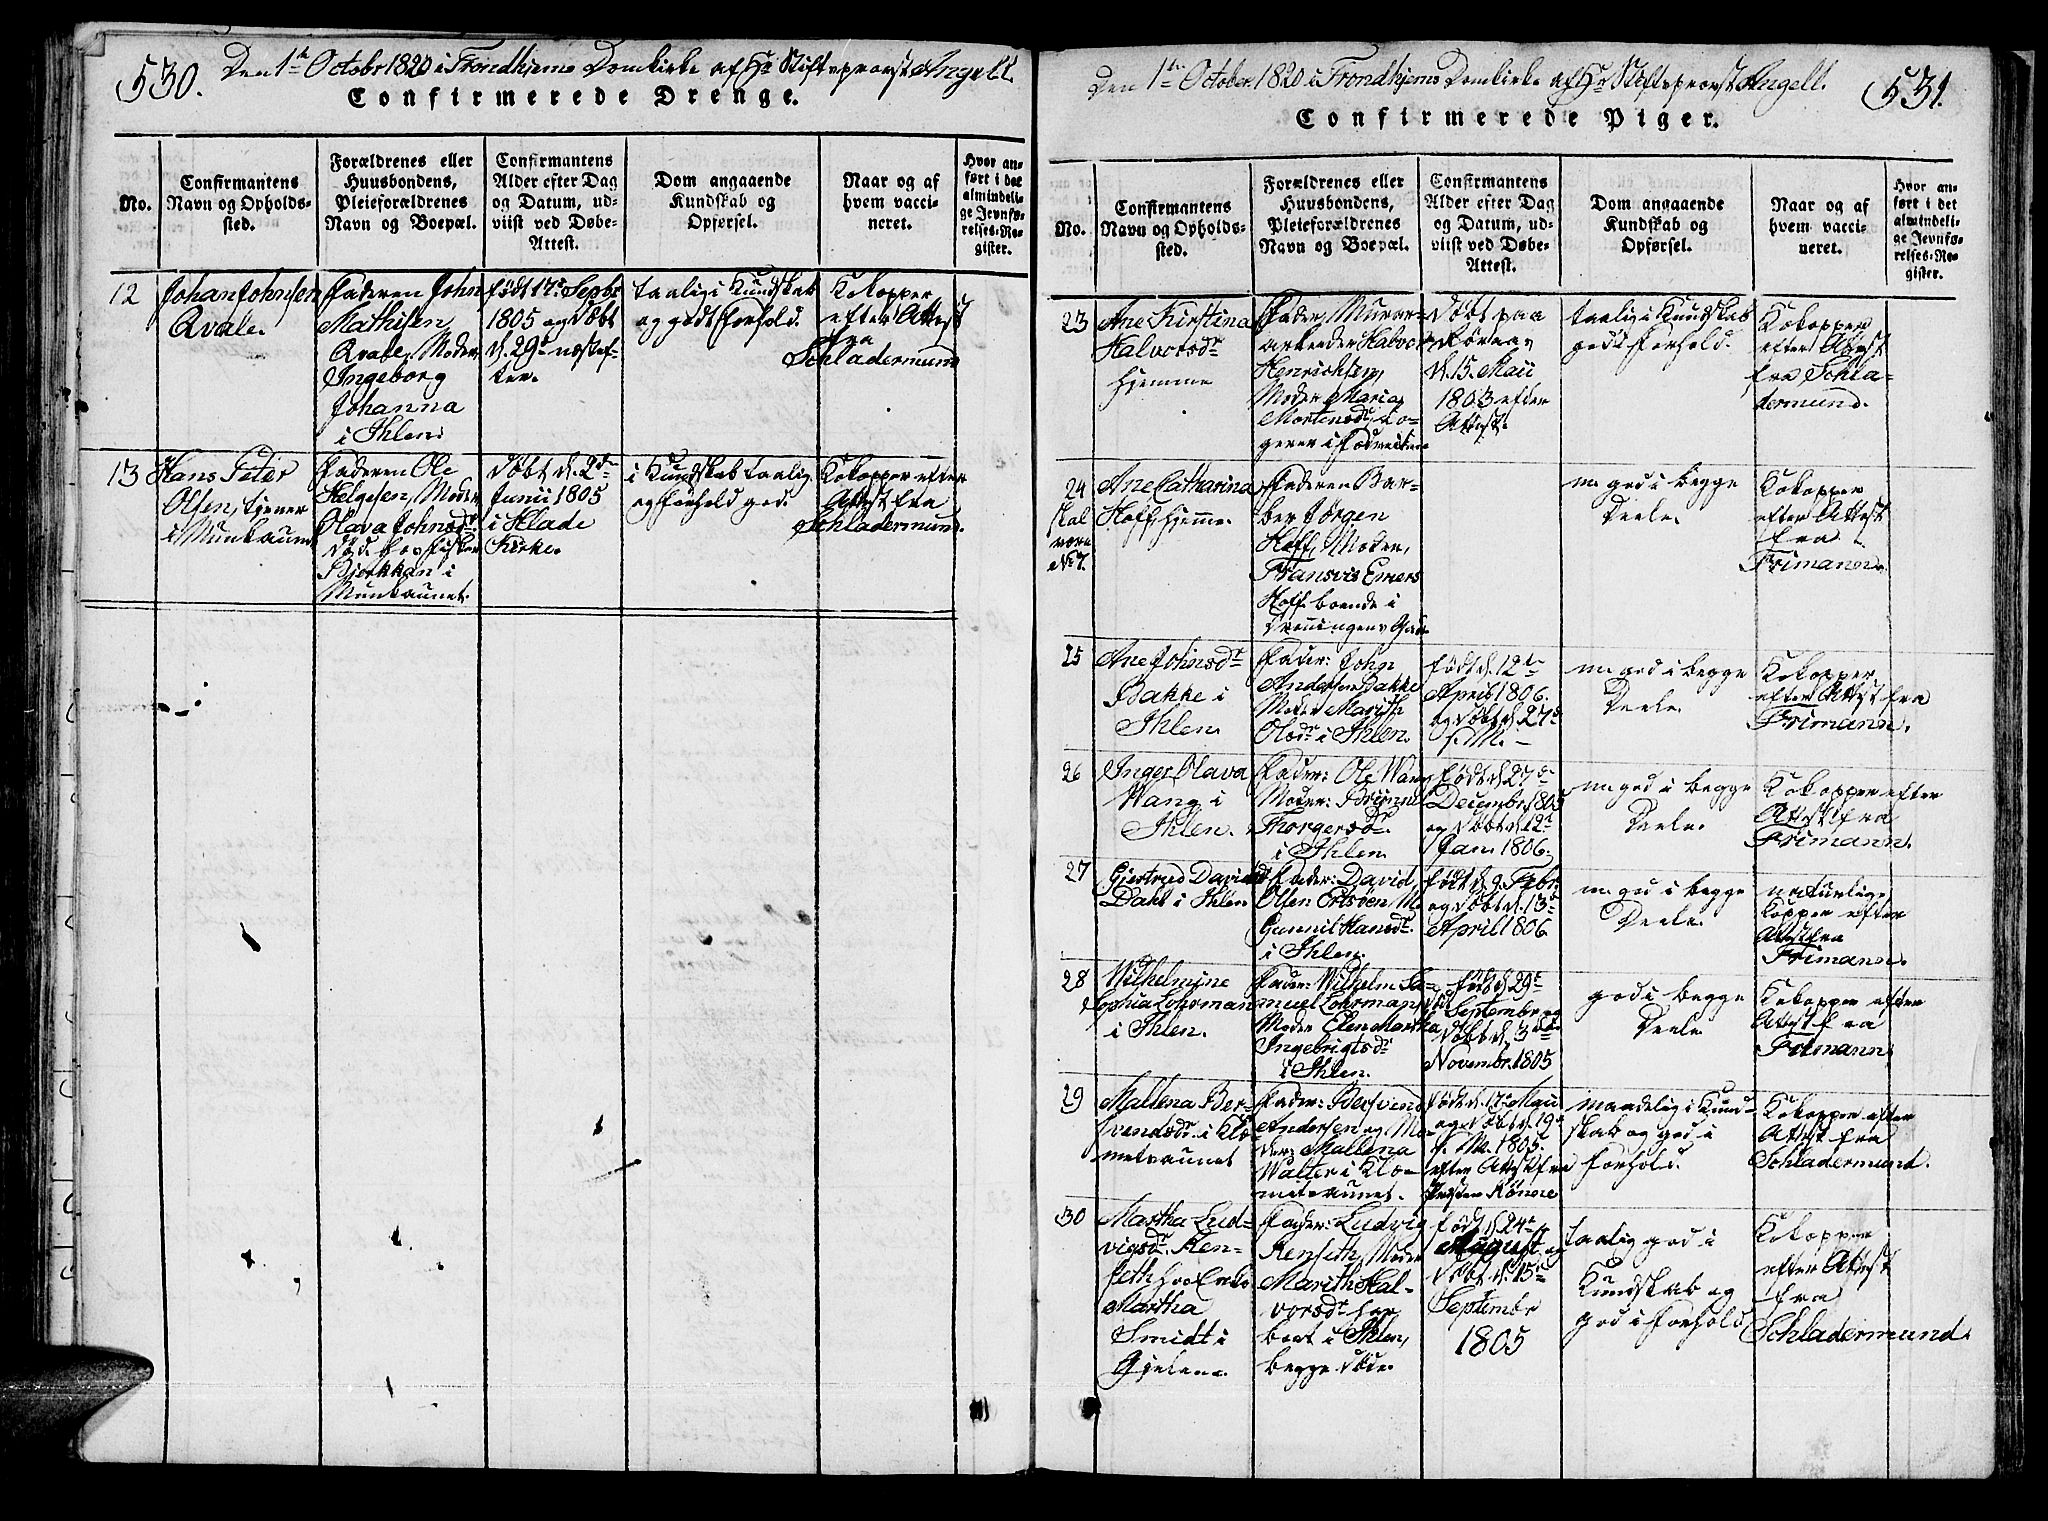 530. Den 1te Octobr 1820 i Trondhjems Domkirke af Hr Stiftsprovst Angell.
Confirmerede Drenge.
No.
Confirmantens
Navn og Opholds-
sted.
Forældrenes eller
Huusbondens,
Pleieforældrenes
Navn og Boepæl.
Confirmantens
Alder efter Dag
og Datum, ud-
viist ved Døbe-
Attest.
Dom angaaende
Kundskab og
Opførsel.
Naar og af
hvem vacci-
neret.
Hvor an-
ført i det
almindeli-
ge Jevnfø-
relses-Re-
gister.
12
Johan Johnsen
Qvale.
Faderen John
Mathisen
Qvale, Moder
Ingeborg
Johanna
i Ihlen.
født 17de Septbr
1805 og døbt
d. 29de næstef-
ter.
taalig i Kundskab
og godt Forhold.
Kokopper
efter Attest
fra
Schladermund
13
Hans Peter
Olsen, tjener
i Munkaunet
Faderen Ole
Helgesen, Moder
Olava Johnsdr
død, hos Fisker
Bjerkkan i
Munkaunet.
døbt d. 2den
Junii 1805
i Hlade
Kirke.
i Kundskab taalig
og Forhold god.
Kokopper efter
Attest fra
Schladermund.
Den 1te October 1820 i Trondhjems Domkirke af Hr Stiftsprovst Angell. 531.
Confirmerede Piger.
No.
Confirmantens
Navn og Opholds-
sted.
Forældrenes eller
Huusbondens,
Pleieforældrenes
Navn og Boepæl.
Confirmantens
Alder efter Dag
og Datum, ud-
viist ved Døbe-
Attest.
Dom angaaende
Kundskab og
Opførsel.
Naar og af
hvem vacci-
neret.
Hvor an-
ført i det
almindeli-
ge Jevnfø-
relses-Re-
gister.
23
Ane Kirstina
Halvorsdr
Hjemme
Fader, Murar-
arbeider Halvor
Henrichsen,
Moder Maria
Mortensdr, Lo-
gerer i
døbt paa
Røraas
d. 15. Maii
1803 efter
Attest.
taalig i Kundskab
godt Forhold.
Kokopper
efter Attest
fra Schla-
dermund.
24
skal
være
No 7.
Ane Catharina
Hoff, Hjemme.
Faderen Bar-
ber Jørgen
Hoff, Moder,
Fransvis Emers
Hoff boende i
Dronningens Gade
meget god i begge
Deele.
Kokopper
efter Attest
fra
Frimann.
25
Ane Johnsdr
Bakke i
Ihlen.
Fader: John
Andersen Bakke
Moder Marith
Olsdr i Ihlen.
født d. 12te
April 1806
og døbt d. 27de
s. M. -
meget god i begge
Deele.
Kokopper
efter Attest fra
Frimann.
26
Inger Olava
Wang i
Ihlen.
Fader: Ole Wang
Moder: Brynne
Thorgersdr
i Ihlen.
født d. 27de
Decembr 1805
og døbt d. 12te
Jan. 1806.
meget god i begge
Deele.
Kokopper efter
Attest fra
Frimann.
27
Giertrud Davidsd
Dahl i Ihlen
Fader: David
Olsen Ertsøen, Mo
Gunnil Hansdr.
i Ihlen.
født d. 9. Febr.
og døbt d. 13de
April 1806.
meget god i begge
Deele.
naturlige
Kopper efter
Attest fra
Frimann.
28
Wilhelmine
Sophia Lohrman
i Ihlen.
Fader: Wilhelm Sa-
muel Lohrman, død
Moder Elen Martha
Ingebrigtsdr
i Ihlen.
født d. 29de
September og
døbt d. 3die
Novembr. 1805
god i begge
Deele
Kokopper efter
Attest fra
Frimann.
29
Mallena Ber-
svendsdr. i Klo-
metsaunet
Fader: Bersvend
Andersen og Mo-
der: Mallena
Walter i Klo-
metsaunet.
født d. 17de Maii
og døbt d. 19de
s. M. 1805.
efter Attest fra
Presten Rønne
maadelig i Kund-
skab og god i
Forhold.
Kokopper efter
Attest fra
Schladermund.
30
Martha Lud-
vigsdr Ren-
seth hos Enke
Martha
Smidt i
Gjelene.
Fader: Ludvig
Renseth, Moder
Marith Hal-
vorsdr har
boet i Ihlen,
begge døde.
født d. 24de
August og
døbt d. 15de
Septembr
1805
taalig god i
Kundskab og
god i Forhold
Kokopper
efter Attest
fra
Schladermund.